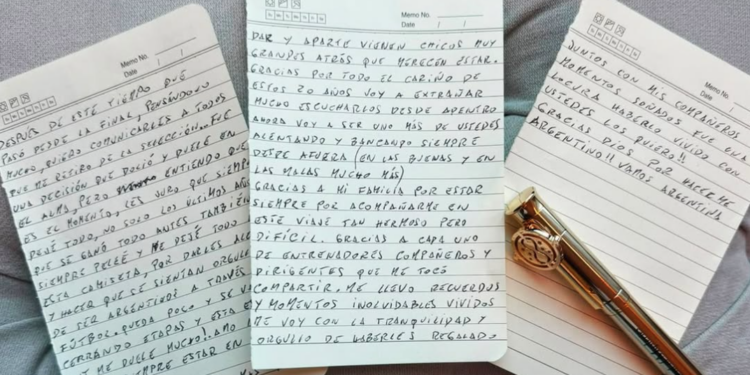 Memo No.
Date / /
DESPUÉS DE ESTE TIEMPO QUE
PASÓ DESDE LA FINAL, PENSÁNDOLO
MUCHO, QUIERO COMUNICARLES A TODOS
QUE ME RETIRO DE LA SELECCIÓN... FUE
UNA DECISIÓN QUE DOLIÓ Y DUELE EN
EL ALMA, PERO ENTIENDO QUE
ES EL MOMENTO. LES JURO QUE SIEMPRE
DEJÉ TODO, NO SOLO LOS ÚLTIMOS AÑOS
QUE SE GANÓ TODO ANTES TAMBIÉN
SIEMPRE PELEÉ Y ME DEJÉ TODO
ESTA CAMISETA, POR DARLES
Y HACER QUE SE SIENTAN
DE SER ARGENTINOS A TRAVÉS
FÚTBOL. QUEDA POCO Y SE
CERRANDO ETAPAS Y ESTA
ME DUELE MUCHO!! AMO
ESTAR EN
Memo No.
Date / /
DAR Y APARTE VIENEN CHICOS MUY
GRANDES ATRÁS QUE MERECEN ESTAR.
GRACIAS POR TODO EL CARIÑO DE
ESTOS 20 AÑOS VOY A EXTRAÑAR
MUCHO ESCUCHARLOS DESDE ADENTRO
AHORA VOY A SER UNO MÁS DE USTEDES
ALENTANDO Y BANCANDO SIEMPRE
DESDE AFUERA (EN LAS BUENAS Y EN
LAS MALAS MUCHO MÁS)
GRACIAS A MI FAMILIA POR ESTAR
SIEMPRE POR ACOMPAÑARME EN
ESTE VIAJE TAN HERMOSO PERO
DIFÍCIL. GRACIAS A CADA UNO
DE ENTRENADORES COMPAÑEROS Y
DIRIGENTES QUE ME TOCÓ
COMPARTIR. ME LLEVO RECUERDOS
Y MOMENTOS INOLVIDABLES VIVIDOS
ME VOY CON LA TRANQUILIDAD Y
ORGULLO DE HABERLES REGALADO
Memo No.
Date / /
JUNTOS CON MIS COMPAÑEROS
MOMENTOS SOÑADOS FUE UNA
LOCURA HABERLO VIVIDO CON
USTEDES LOS QUIERO!!
GRACIAS DIOS POR HACERME
ARGENTINO!! VAMOS ARGENTINA